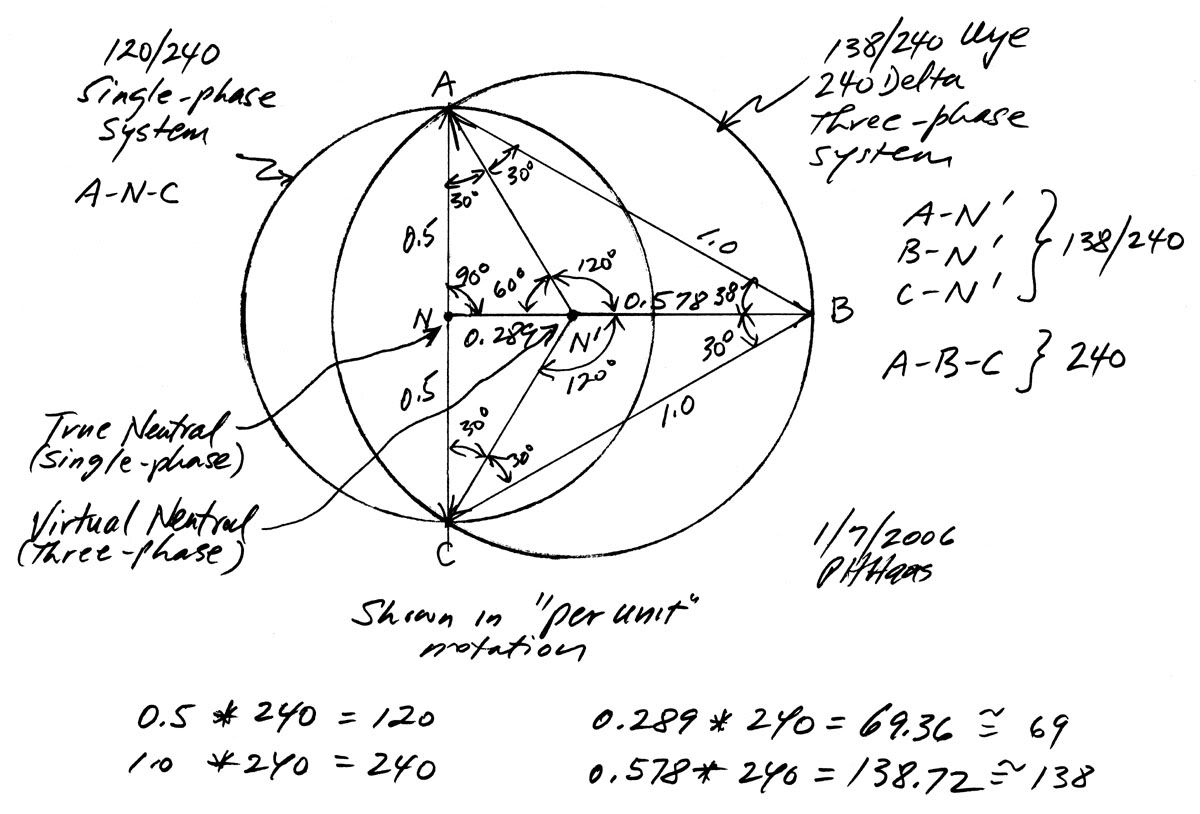 120/240
Single-phase
System
A-N-C
138/240 Wye
240 Delta
Three-phase
system
A-N'
B-N'
C-N'
138/240
A-B-C
240
A
30°
30°
0.5
1.0
90°
60°
120°
0.578
38°
N
0.289
N'
B
30°
120°
0.5
1.0
30°
30°
C
True Neutral
(single-phase)
Virtual Neutral
(Three-phase)
1/7/2006
PHHaas
Shown in "per unit"
notation
0.5 * 240 = 120
1.0 * 240 = 240
0.289 * 240 = 69.36 ≅ 69
0.578 * 240 = 138.72 ≅ 138